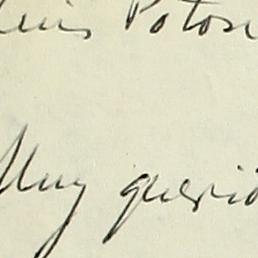 Luis Potosí
Muy querid